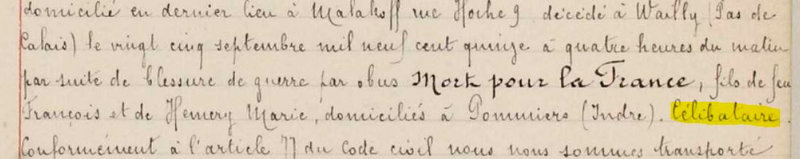 domicilié en dernier lieu à Malakoff rue Hoche 9 décédé à Wailly (Pas de
Calais) le vingt cinq septembre mil neuf cent quinze à quatre heures du matin
par suite de blessure de guerre par obus Mort pour la France, fils de feu
François et de Hemery Marie, domiciliés à Pommiers (Indre). Célibataire.
Conformément à l'article 77 du Code civil nous nous sommes transporté